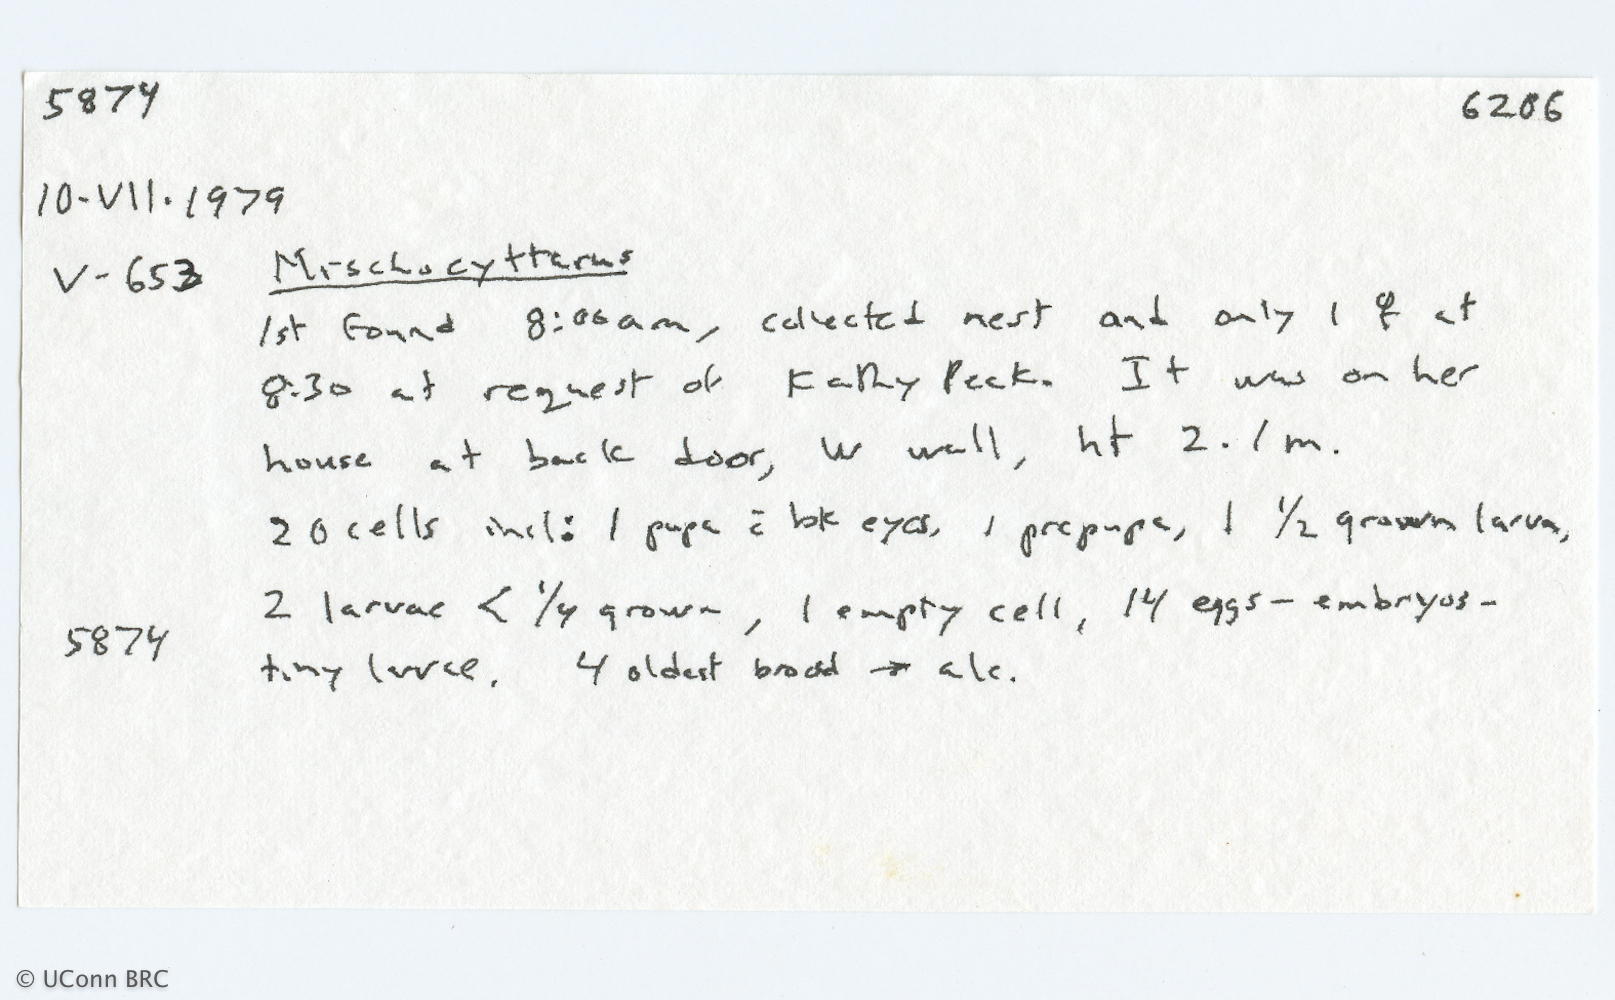 5874 6206
10-VII-1979
V-653 Mischocyttarus
1st found 8:00am, collected nest and only 1 ♀ at
8:30 at request of Kathy Peck. It was on her
house at back door, W wall, ht 2.1m.
20 cells incl: 1 pupa c̄ bk eyes, 1 prepupa, 1 1/2 grown larva,
2 larvae < 1/4 grown, 1 empty cell, 14 eggs - embryos -
5874 tiny larvae. 4 oldest brood → alc.
© UConn BRC